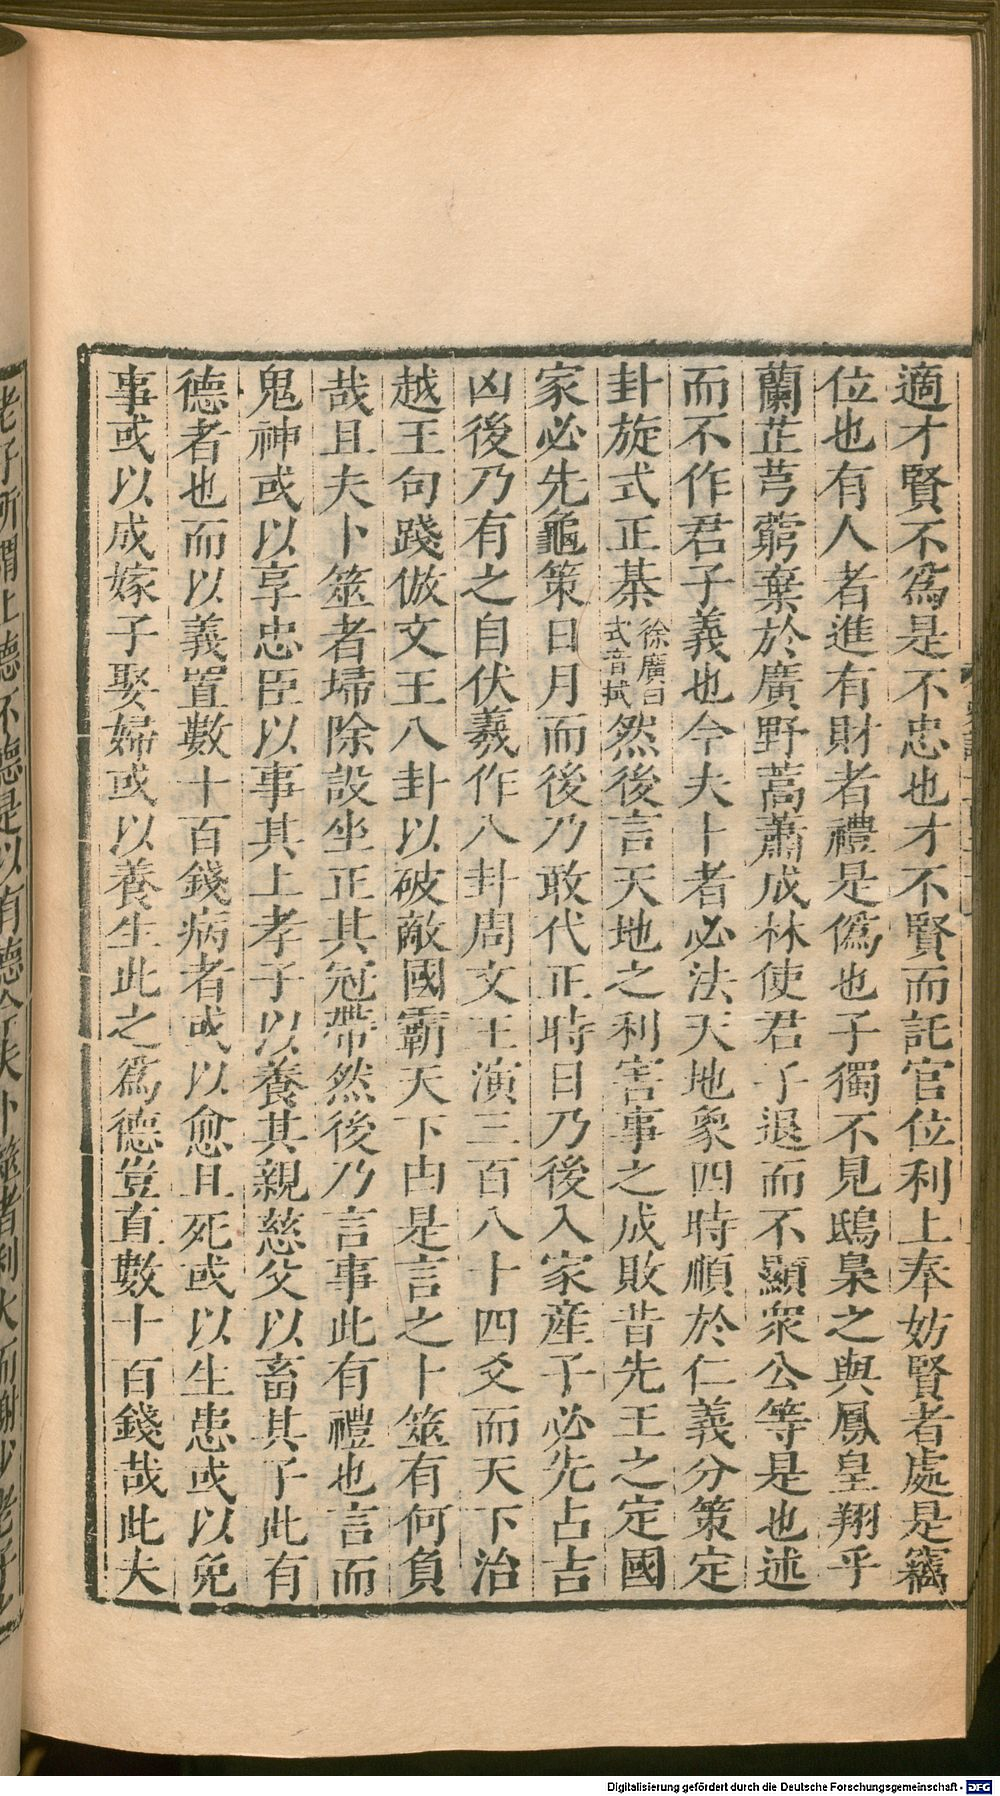 適才賢不爲是不忠也才不賢而託官位利上奉妨賢者處是竊
位也有人者進有財者禮是僞也子獨不見鴟梟之與鳳皇翔乎
蘭芷芎藭棄於廣野蒿蕭成林使君子退而不顯衆公等是也述
而不作君子義也今夫卜者必法天地象四時順於仁義分策定
卦旋式正棊徐廣曰式音拭然後言天地之利害事之成敗昔先王之定國
家必先龜策日月而後乃敢代正時日乃後入家產子必先占吉
凶後乃有之自伏羲作八卦周文王演三百八十四爻而天下治
越王句踐倣文王八卦以破敵國霸天下由是言之卜筮有何負
哉且夫卜筮者埽除設坐正其冠帶然後乃言事此有禮也言而
鬼神或以享忠臣以事其上孝子以養其親慈父以畜其子此有
德者也而以義置數十百錢病者或以愈且死或以生患或以免
事或以成嫁子娶婦或以養生此之爲德豈直數十百錢哉此夫
老子所謂上德不德是以有德今夫卜筮者利大而謝少老子之
Digitalisierung gefördert durch die Deutsche Forschungsgemeinschaft - DFG